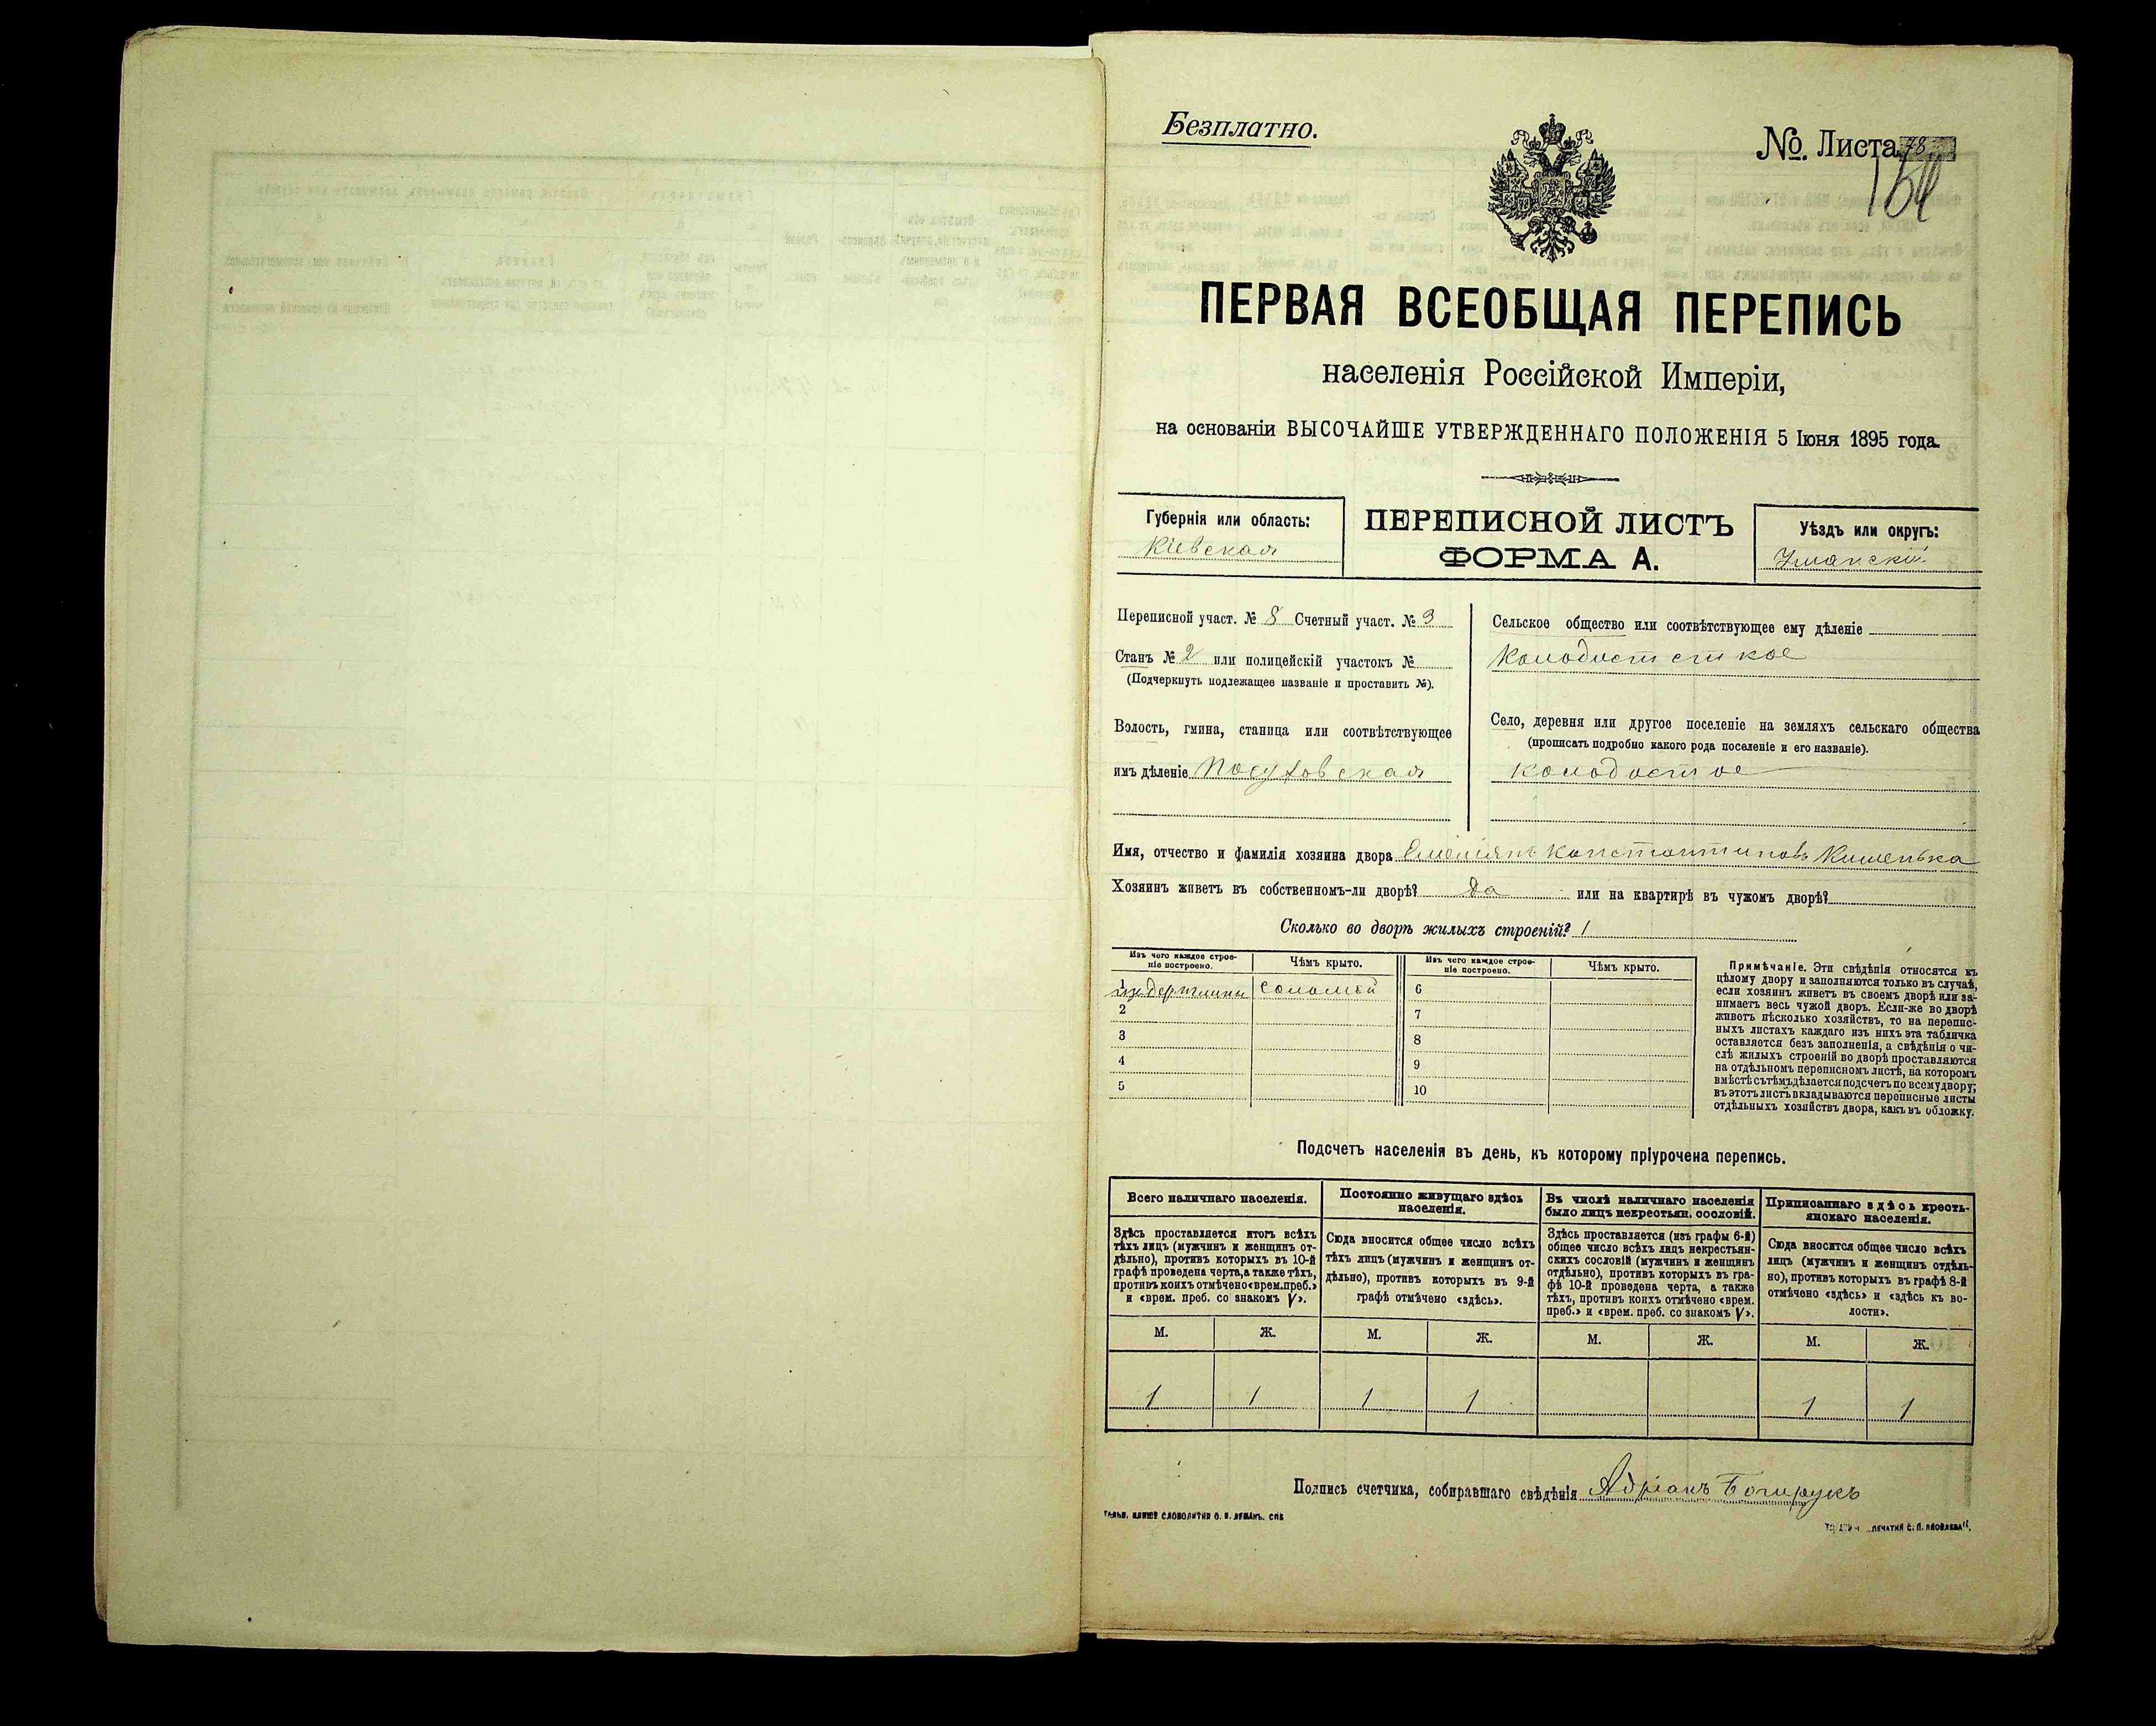 Безплатно.
№. Листа 78
154
ПЕРВАЯ ВСЕОБЩАЯ ПЕРЕПИСЬ
населенія Россійской Имперіи,
на основаніи ВЫСОЧАЙШЕ УТВЕРЖДЕННАГО ПОЛОЖЕНІЯ 5 Іюня 1895 года.
Губернія или область:
Кіевская
ПЕРЕПИСНОЙ ЛИСТЪ
ФОРМА А.
Уѣздъ или округъ:
Уманскій
Переписной участ. № 8 Счетный участ. № 3
Станъ № 2 или полицейскій участокъ №
(Подчеркнуть подлежащее названіе и проставить №).
Волость, гмина, станица или соотвѣтствующее
имъ дѣленіе Посуховская
Сельское общество или соотвѣтствующее ему дѣленіе
Село, деревня или другое поселеніе на земляхъ сельскаго общества
(прописать подробно какого рода поселеніе и его названіе).
Имя, отчество и фамилія хозяина двора Константиновъ Кишенька
Хозяинъ живетъ въ собственномъ-ли дворѣ? Да или на квартирѣ въ чужомъ дворѣ?
Сколько во дворѣ жилыхъ строеній? 1
Изъ чего каждое строе-
ніе построено.
Чѣмъ крыто.
1
соломой
2
3
4
5
Изъ чего каждое строе-
ніе построено.
Чѣмъ крыто.
6
7
8
9
10
Примѣчаніе. Эти свѣдѣнія относятся къ
цѣлому двору и заполняются только въ случаѣ,
если хозяинъ живетъ въ своемъ дворѣ или за-
нимаетъ весь чужой дворъ. Если-же во дворѣ
живетъ нѣсколько хозяйствъ, то на перепис-
ныхъ листахъ каждаго изъ нихъ эта табличка
оставляется безъ заполненія, а свѣдѣнія о чи-
слѣ жилыхъ строеній во дворѣ проставляются
на отдѣльномъ переписномъ листѣ, на которомъ
вмѣстѣ съ тѣмъ дѣлается подсчетъ по всему двору;
въ этотъ листъ вкладываются переписные листы
отдѣльныхъ хозяйствъ двора, какъ въ обложку.
Подсчетъ населенія въ день, къ которому пріурочена перепись.
Всего наличнаго населенія.
Здѣсь проставляется итогъ всѣхъ
тѣхъ лицъ (мужчинъ и женщинъ от-
дѣльно), противъ которыхъ въ 10-й
графѣ проведена черта, а также тѣхъ,
противъ коихъ отмѣчено «врем. преб.»
и «врем. преб. со знакомъ V».
М. Ж.
1 1
Постоянно живущаго здѣсь
населенія.
Сюда вносится общее число всѣхъ
тѣхъ лицъ (мужчинъ и женщинъ от-
дѣльно), противъ которыхъ въ 9-й
графѣ отмѣчено «здѣсь».
М. Ж.
1 1
Въ числѣ наличнаго населенія
было лицъ некрестьян. сословій.
Здѣсь проставляется (изъ графы 6-й)
общее число всѣхъ лицъ некрестьян-
скихъ сословій (мужчинъ и женщинъ
отдѣльно), противъ которыхъ въ гра-
фѣ 10-й проведена черта, а также
тѣхъ, противъ коихъ отмѣчено «врем.
преб.» и «врем. преб. со знакомъ V».
М. Ж.
Приписаннаго здѣсь кресть-
янскаго населенія.
Сюда вносится общее число всѣхъ
лицъ (мужчинъ и женщинъ отдѣль-
но), противъ которыхъ въ графѣ 8-й
отмѣчено «здѣсь» и «здѣсь къ во-
лости».
М. Ж.
1 1
Подпись счетчика, собиравшаго свѣдѣнія Адріанъ
СЛОВОЛИТНИ О. И. ЛЕМАНЪ. СПБ